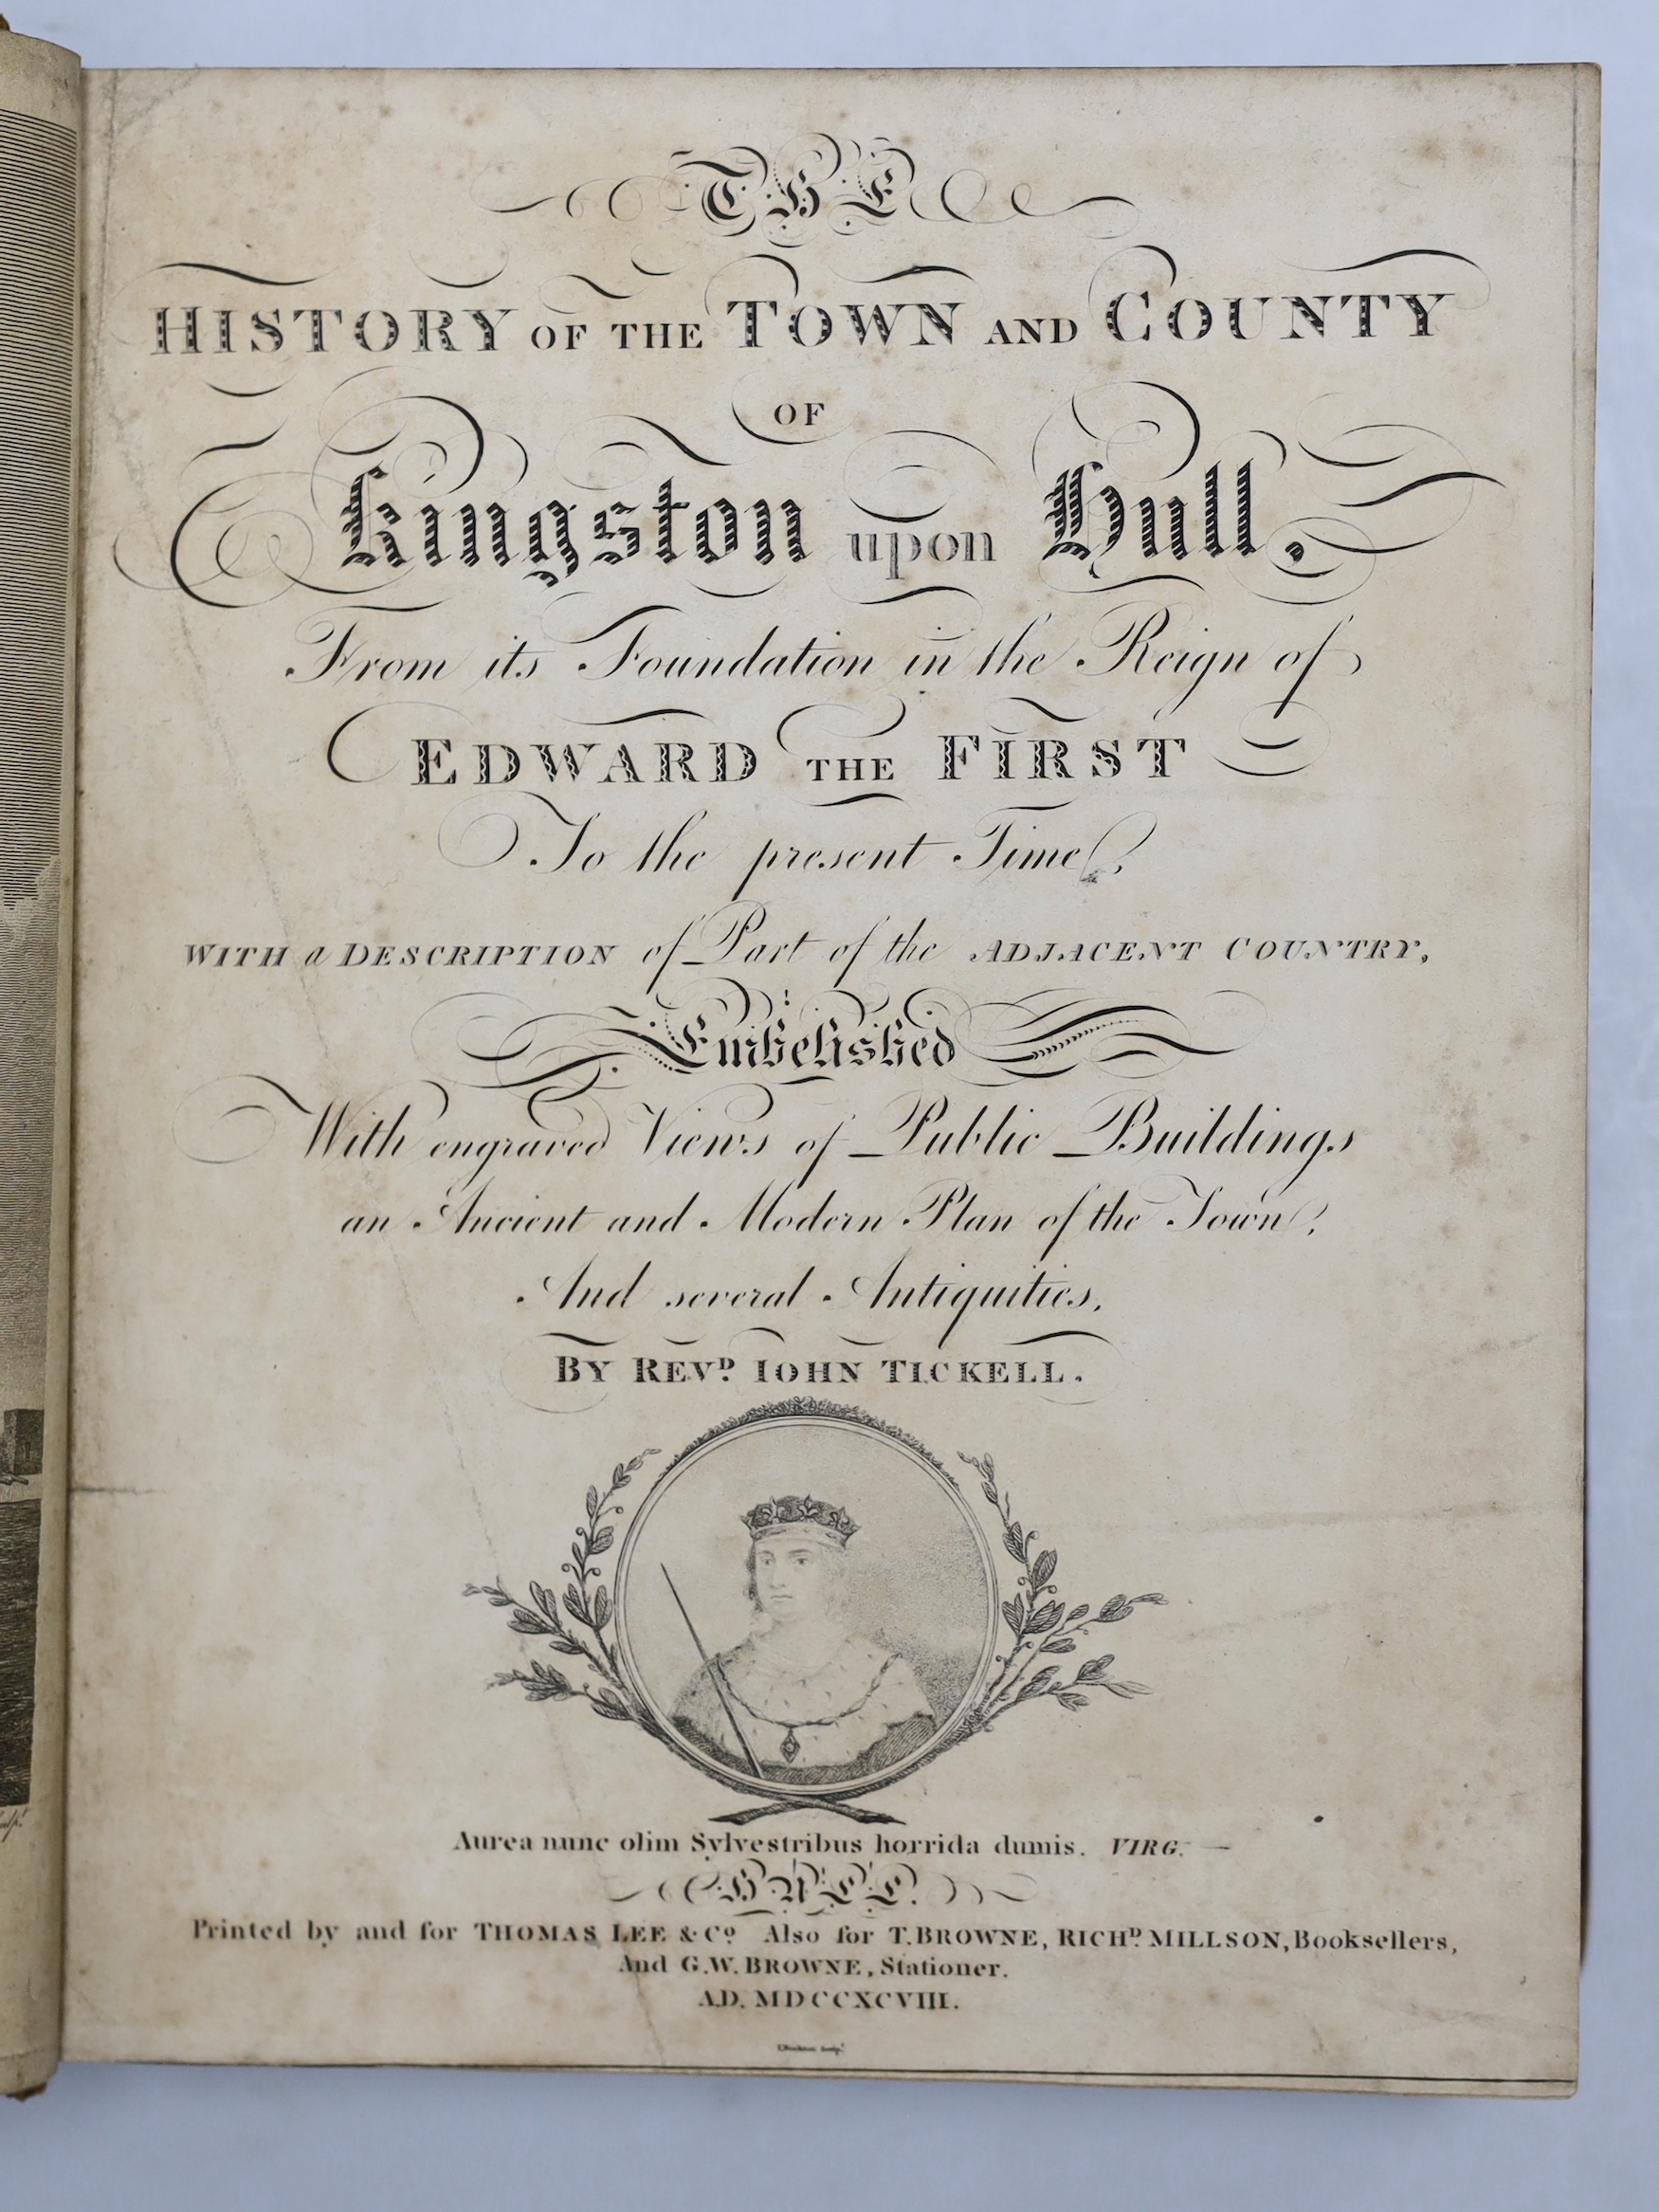 THE
HISTORY OF THE TOWN AND COUNTY
OF
Kingston upon Hull.
From its Foundation in the Reign of
EDWARD THE FIRST
To the present Time,
WITH a DESCRIPTION of Part of the ADJACENT COUNTRY,
Embelished
With engraved Views of Public Buildings
an Ancient and Modern Plan of the Town,
And several Antiquities.
BY REVD. IOHN TICKELL.
Aurea nunc olim Sylvestribus horrida dumis. VIRG. —
HULL.
Printed by and for THOMAS LEE & Co. Also for T. BROWNE, RICHD. MILLSON, Booksellers,
And G.W. BROWNE, Stationer.
A.D. MDCCXCVIII.